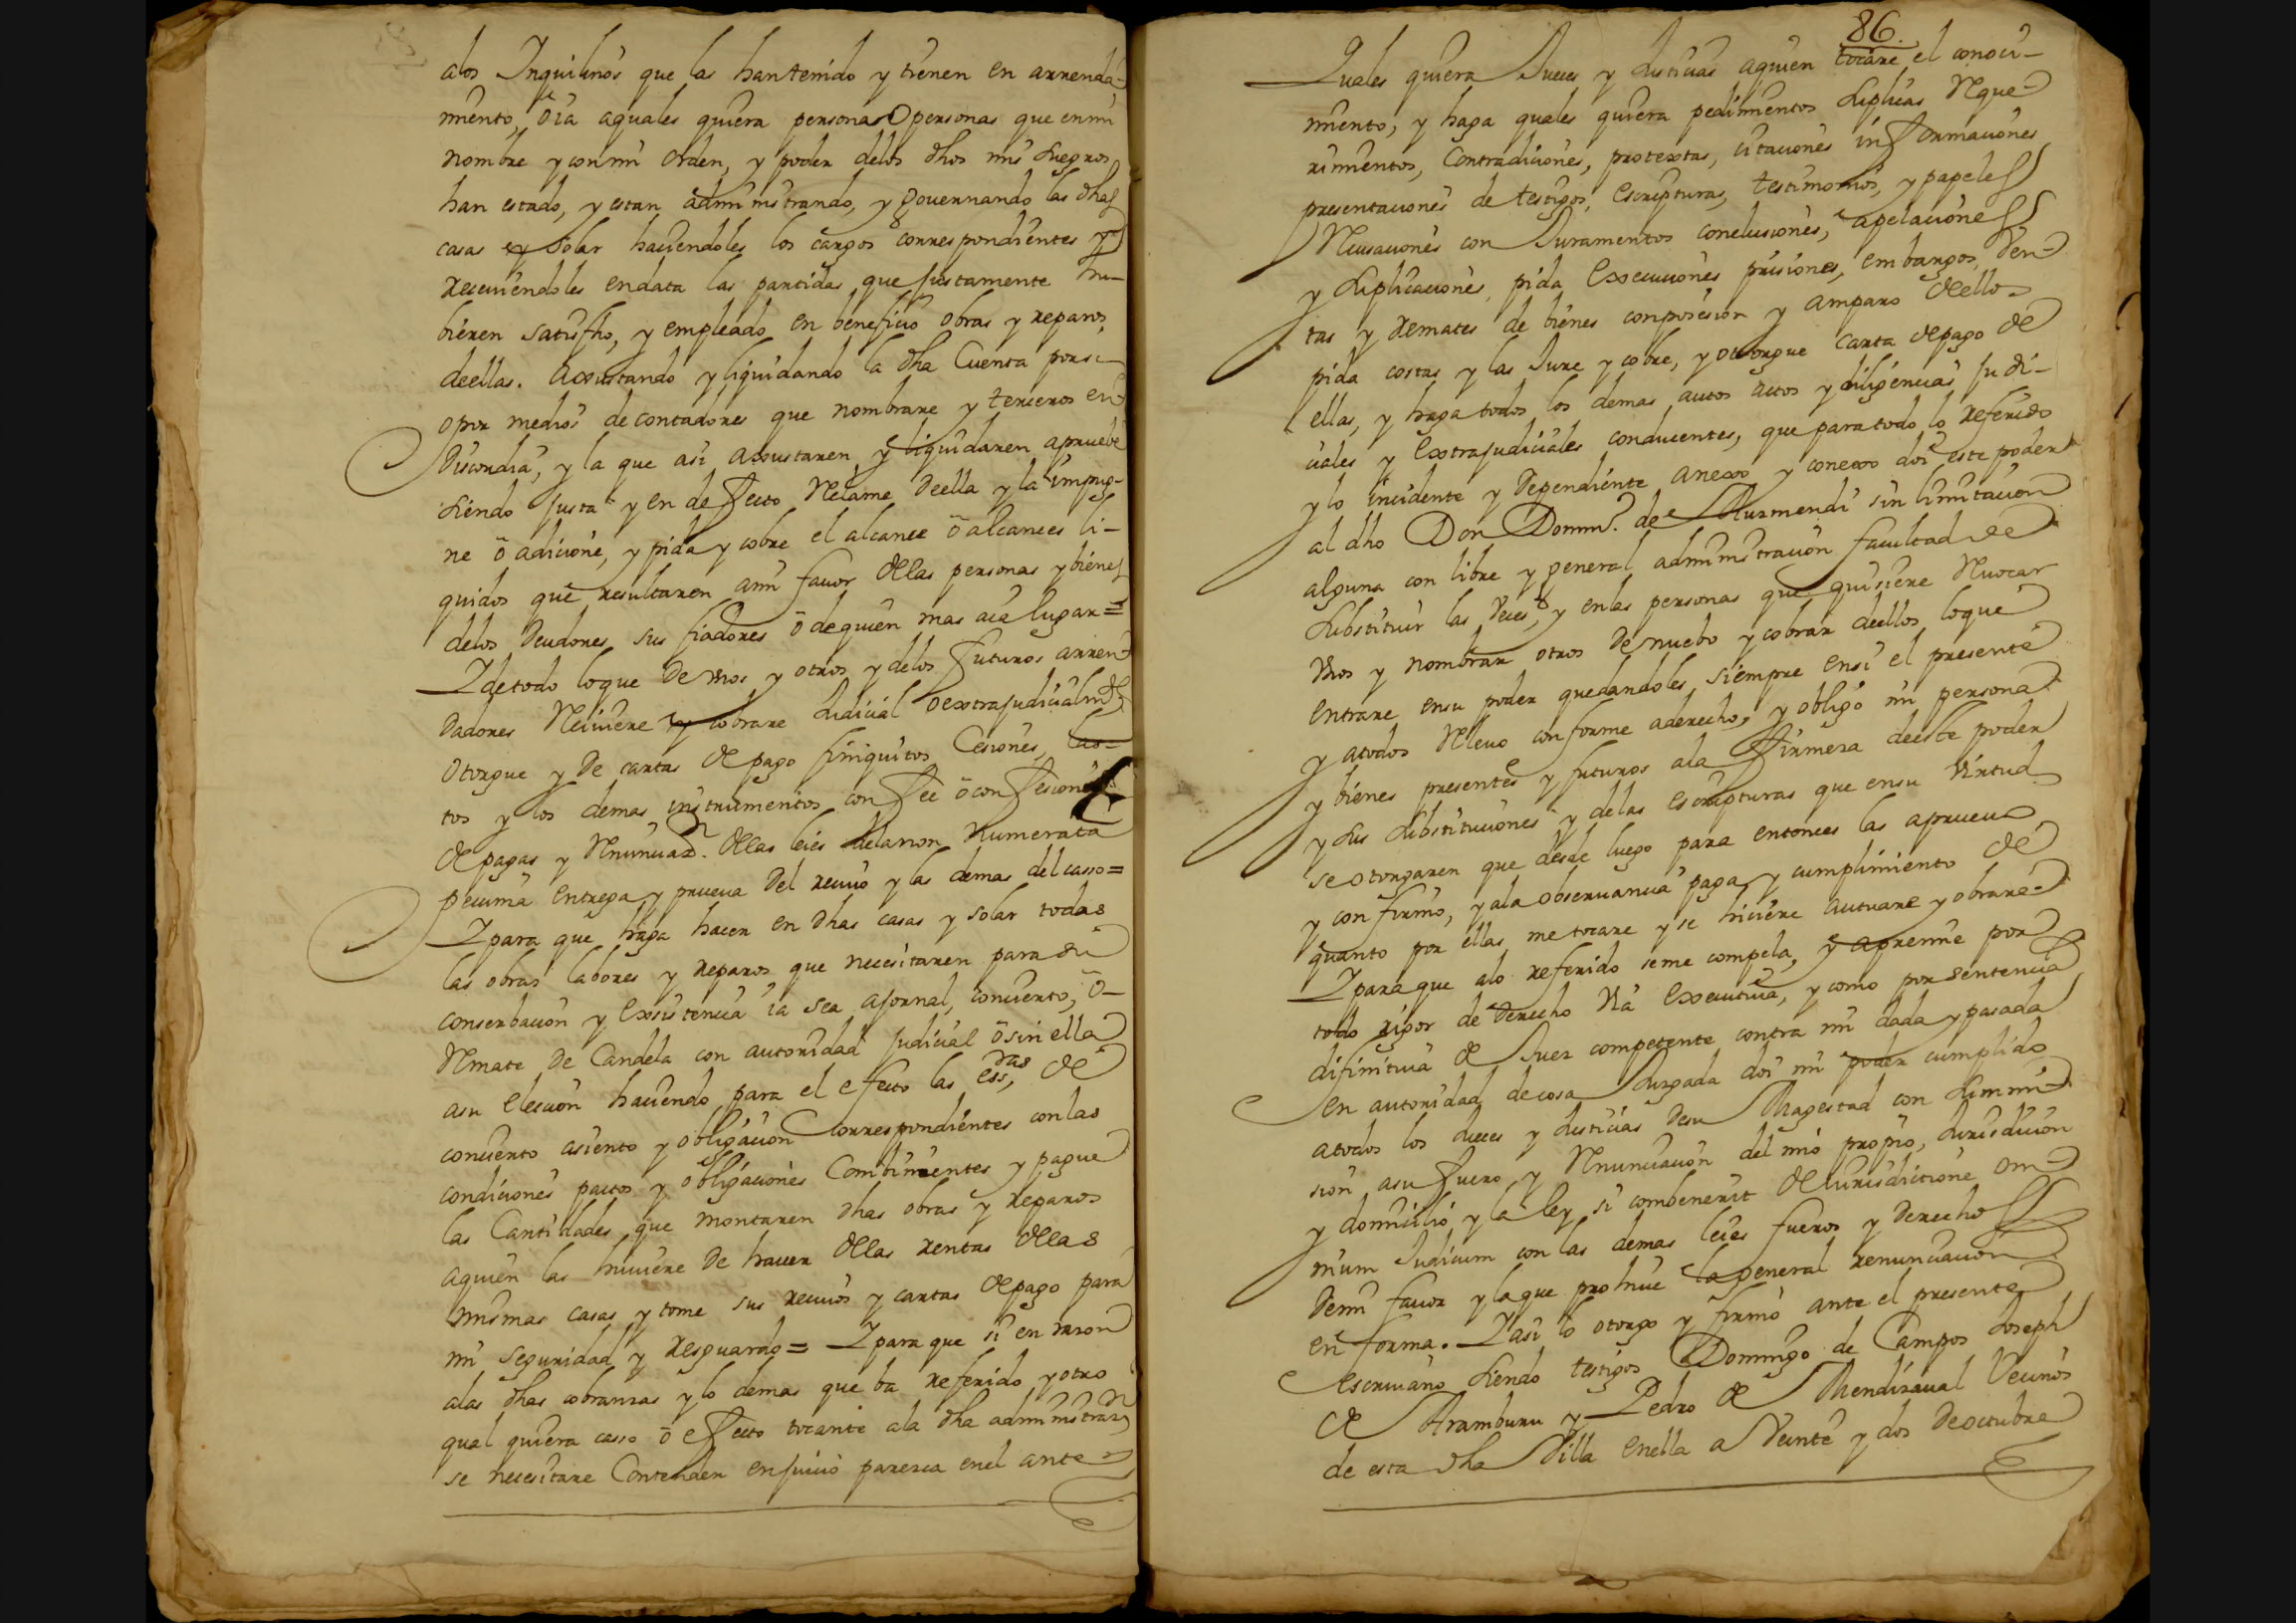 alos Inquilinos que las han tenido y tienen en arrenda-
miento, ô ia aquales quiera persona o personas que en mi
nombre y con mi orden, y poder delos dhos mis suegros
han estado, y estan administrando, y governando las dhas
casas y solar haciendoles los cargos correspondientes y
reciviendoles en data las partidas que justamente hu-
bieren satisfho, y empleado en beneficio obras y reparos
deellas. Axustando y liquidando la dha Cuenta por si
o por medios de contadores que nombrare y terceros en
discordia, y la que asi axustaren, y liquidaren apruebe
siendo justa y en defecto Reclame deella y la impug-
ne ô adicione, y pida y cobre el alcance ô alcances li-
quidos que resultaren ami favor dellas personas y bienes
delos Deudores, sus fiadores ô dequien mas aia lugar =
Y detodo loque de unos y otros, y delos futuros arren
dadores Reciviere y cobrare Judicial ô extrajudicialmte
otorgue y de cartas de pago finiquitos Cesiones, las-
tos y los demas instrumentos con fee ô confesiones
de pagas y Renunciaz.n dellas leies dela non numerata
pecunia entrega y prueva del recivo y las demas del casso =
Y para que haga hacer en dhas casas y solar todas
las obras labores y reparos que necesitaren para su
conserbacion y Exsistencia ia sea a jornal, concierto, ô
Remate de Candela con autoridad judicial ô sin ella
asu eleccion haciendo para el efecto las ess.ras de
concierto asiento y obligacion Correspondientes con las
condiciones pactos y obligaciones Combinientes y pague
las Cantidades que montaren dhas obras y reparos
aquien las huviere de haver dellas rentas dellas
mismas casas y tome sus recivos y cartas de pago para
mi seguridad y resguardo = Y para que si en razon
alas dhas cobranzas y lo demas que ba referido y otro
qual quiera casso ô efecto tocante ala dha administraz.n
se necesitare Contender en juicio parezca en el ante
86.
Quales quiera Jueces y Justicias aquien tocare el conoci-
miento, y haga quales quiera pedimientos suplicas Reque-
rimientos, Contradiciones, protextas, citaciones informaciones
presentaciones de testigos, escripturas, testimonios, y papeles
Recusaciones con Juramentos conclusiones, apelaciones
y suplicaciones, pida Execuciones prisiones, embargos, ven
tas y remates de bienes con posesion y amparo deellos
pida costas y las Jure y cobre, y otorgue carta de pago de
ellas, y haga todos los demas autos actos y diligencias judi-
ciales y Extrajudiciales conducentes, que para todo lo referido
y lo incidente y Dependiente anexo y conexo doi este poder
al dho Don Doming.o de Aurmendi sin limitacion
alguna con libre y general administracion facultad de
substituir las veces, y en las personas que quisiere Revocar
unos y nombrar otros de nuebo y cobrar deellos loque
entrare en su poder quedandoles siempre en si el presente
y atodos Relevo conforme aderecho, y obligo mi persona
y bienes presentes y futuros ala firmeza deeste poder
y sus substituciones y delas escripturas que en su virtud
se otorgaren que desde luego para entonces las apruevo
y confirmo, y ala observancia paga y cumplimiento de
quanto por ellas me tocare y se hiciere actuare y obrare
Y para que alo referido seme compela, y apremie por
todo rigor de Derecho Via Executiva, y como por sentencia
difinitiva de Juez competente contra mi dada y pasada
en autoridad decosa Juzgada doi mi poder cumplido
atodos los Jueces y Justicias desu Magestad con summi
sion asu fuero y Renunciacion del mio propio, Jurisdicion
y domicilio y la ley si combenerit de iurisdictione om
nium Judicum con las demas leies fueros y derechos
demi favor y la que prohive la general renunciacion
en forma. Y asi lo otorgo y firmo ante el presente
escrivano siendo testigos Domingo de Campos Joseph
de Aramburu y Pedro de Mendizaval Vecinos
de esta dha Villa Enella a Veinte y dos deoctubre